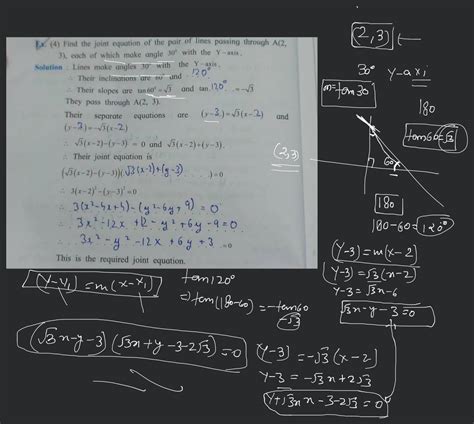 Ex. (4) Find the joint equation of the pair of lines passing through A(2,
3), each of which make angle 30° with the Y-axis.
Solution : Lines make angles 30° with the Y-axis.
∴ Their inclinations are 60° and 120°
∴ Their slopes are tan 60° = √3 and tan 120° = -√3
They pass through A(2, 3).
Their separate equations are (y-3)=√3(x-2) and
(y-3)=-√3(x-2)
∴ √3(x-2)-(y-3)=0 and √3(x-2)+(y-3).
∴ Their joint equation is
(√3(x-2)-(y-3))(√3(x-2)+(y-3) )=0
∴ 3(x-2)²-(y-3)²=0
∴ 3(x²-4x+4)-(y²-6y+9)=0
∴ 3x²-12x+12-y²+6y-9=0
∴ 3x²-y²-12x+6y+3 =0
This is the required joint equation.
(2,3)
30° y-axi
m=tan30
180
tan60=√3
(2,3)
60°
180
180-60=120°
(y-3)=m(x-2)
(y-3)=√3(x-2)
y-3=√3x-6
√3x-y-3=0
(y-y₁)=m(x-x₁)
tan120°
⇒tan(180-60)=-tan60
-√3
(√3x-y-3)(√3x+y-3-2√3)=0
(y-3)=-√3(x-2)
y-3=-√3x+2√3
y+√3x-3-2√3=0